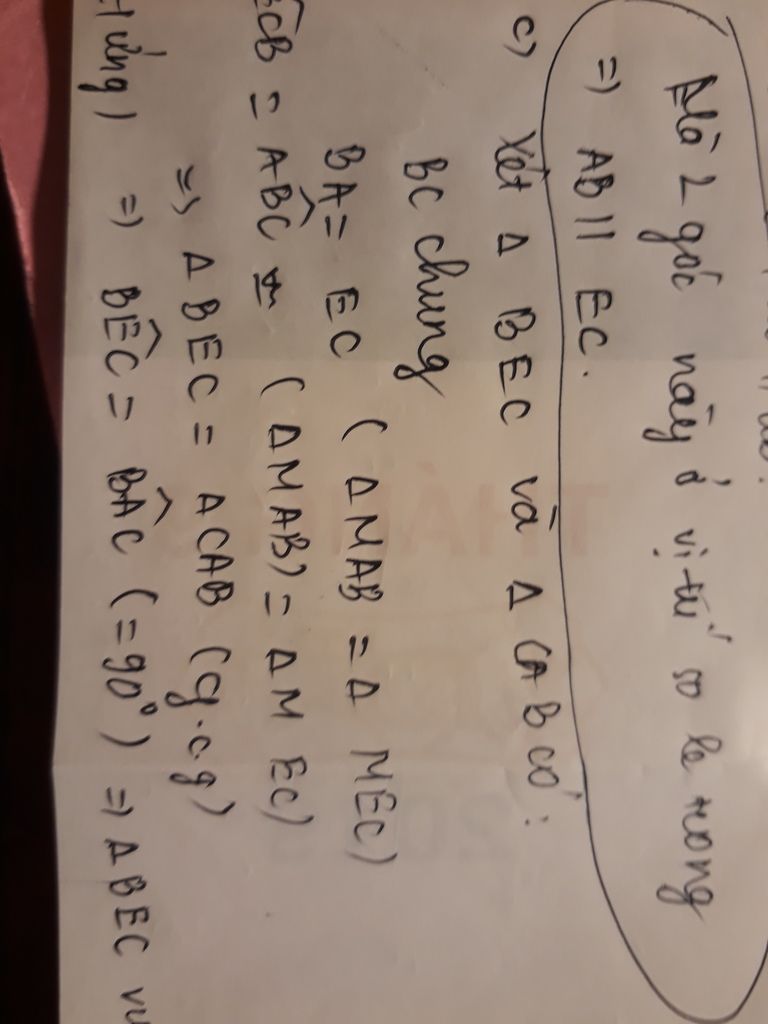 Mà 2 góc này ở vị trí so le trong
=> AB // EC.
c) Xét Δ BEC và Δ CAB có:
BC chung
BA = EC ( Δ MAB = Δ MEC)
ECB = ABC ( Δ MAB) = Δ M EC)
=> Δ BEC = Δ CAB (g.c.g)
ứng) => BEC = BAC (=90°) => Δ BEC